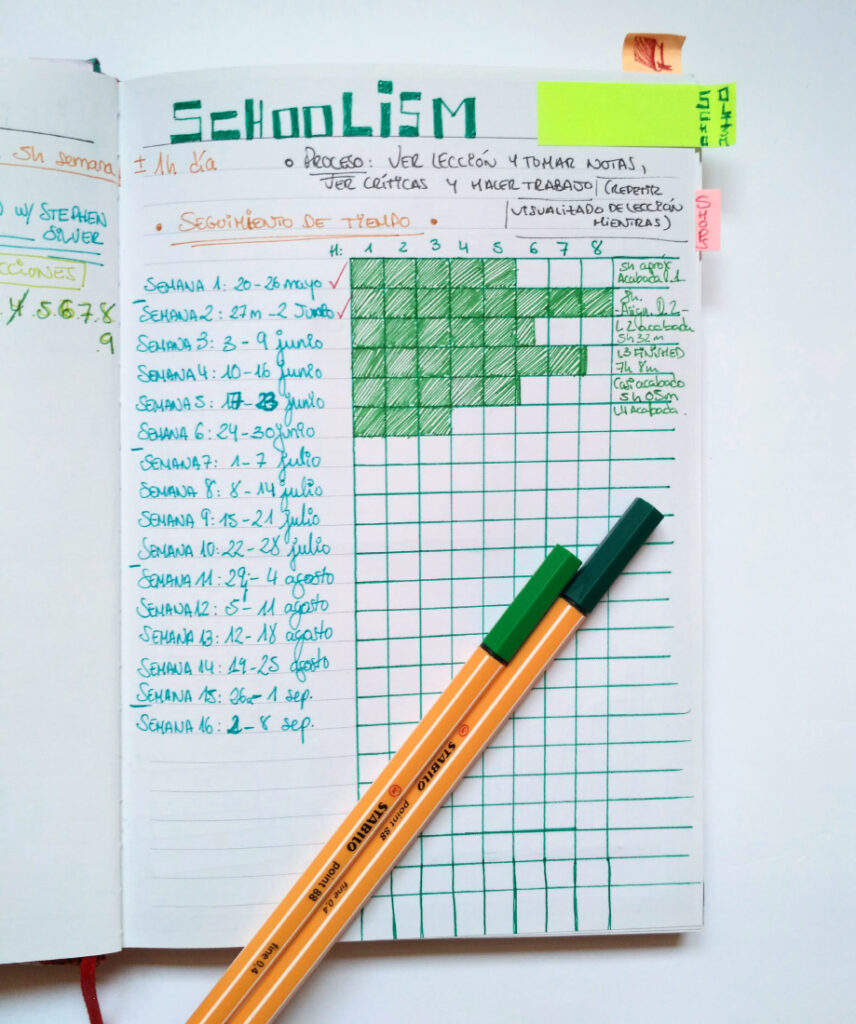 5h semana
w/ STEPHEN
SILVER
CCIONES
4.5.6.7.8
.9
SCHOOLISM
± 1h día
• PROCESO: VER LECCIÓN Y TOMAR NOTAS,
VER CRÍTICAS Y HACER TRABAJO (REPETIR
VISUALIZADO DE LECCIÓN
MIENTRAS)
• SEGUIMIENTO DE TIEMPO •
H: 1 2 3 4 5 6 7 8
SEMANA 1: 20-26 mayo ✓ 5h aprox. Acabada 1
SEMANA 2: 27m - 2 Junio ✓ 8h.
SEMANA 3: 3 - 9 junio L2 acabada 5h32m
SEMANA 4: 10-16 junio L3 FINISHED 7h 8m
SEMANA 5: 17-23 junio Casi acabado 5h 05m
SEMANA 6: 24-30 junio L4 Acabada.
SEMANA 7: 1-7 julio
SEMANA 8: 8-14 julio
SEMANA 9: 15-21 julio
SEMANA 10: 22-28 julio
SEMANA 11: 29j - 4 agosto
SEMANA 12: 5 - 11 agosto
SEMANA 13: 12-18 agosto
SEMANA 14: 19-25 agosto
SEMANA 15: 26a - 1 sep.
SEMANA 16: 2-8 sep.
STABILO
point 88
fine 0.4
STABILO
point 88
fine 0.4